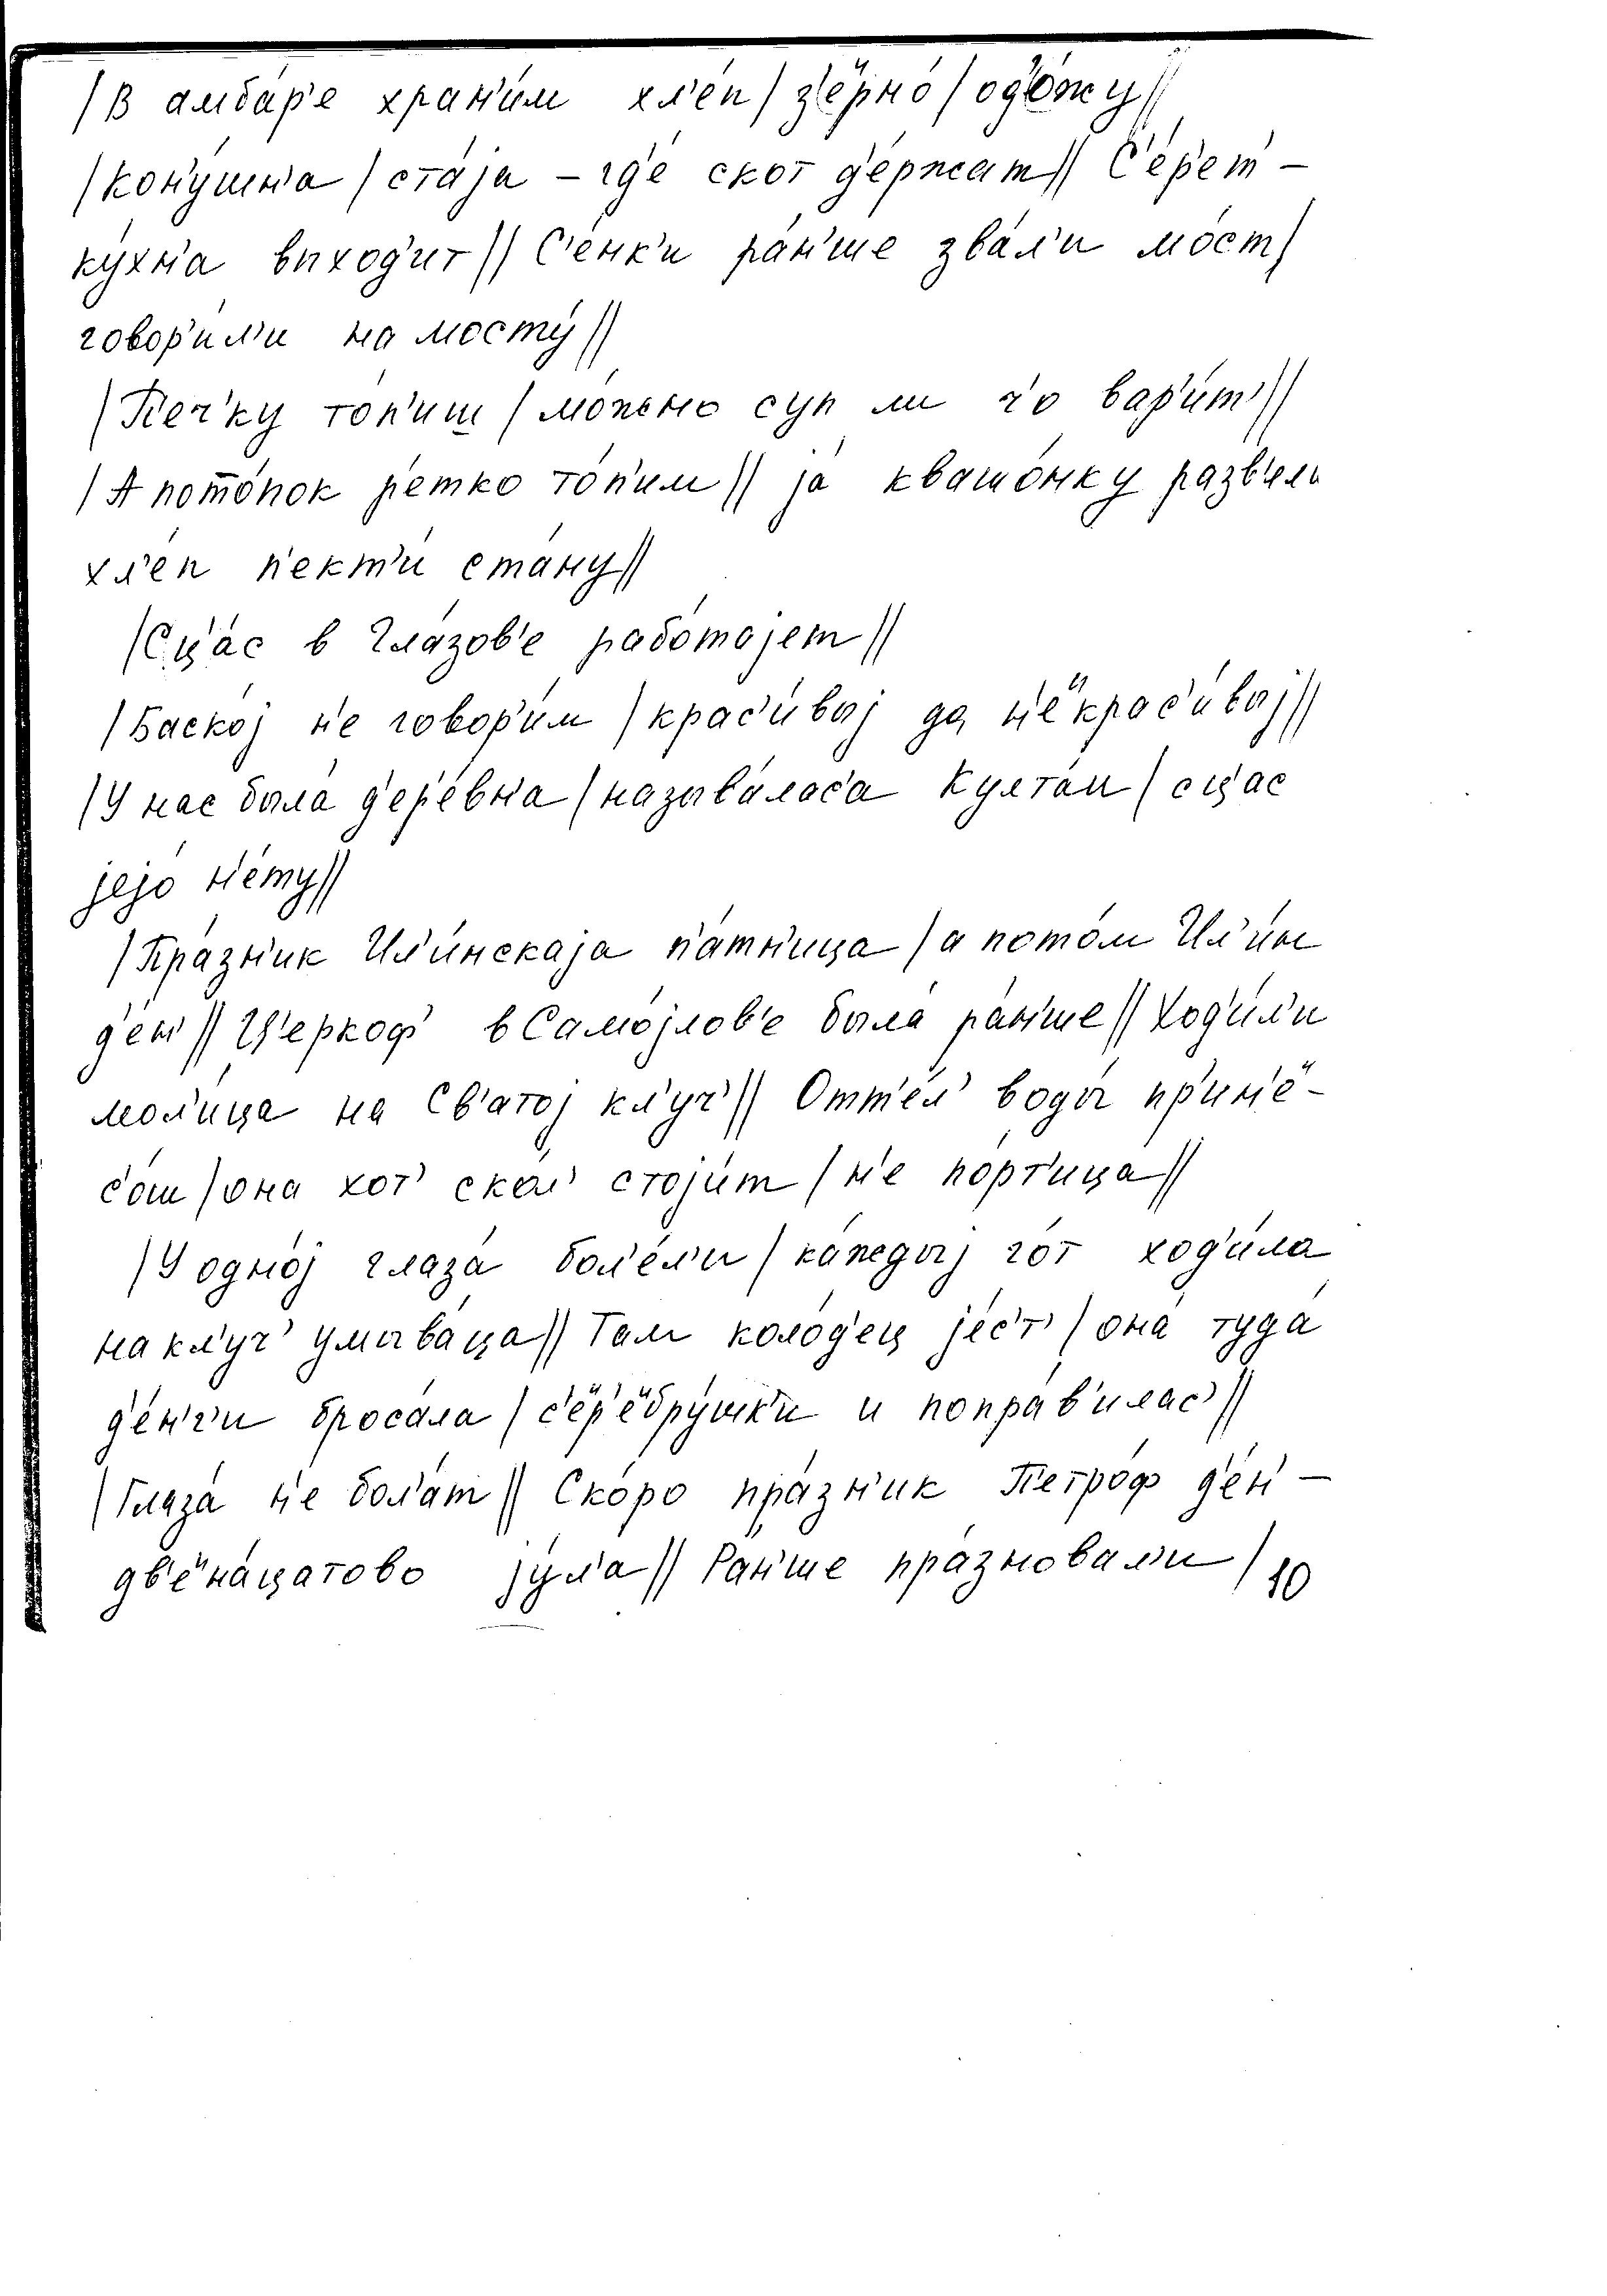 /В амба́р'е хран'и́м хл'е́п / з'ӗрно́ / од'о́жу //
/кон'у́шн'а / ста́ја – гд'е́ скот д'е́ржат // С'е́р'ет' –
ку́хн'а выход'ит // С'е́нк'и ра́н'ше зва́л'и мо́ст /
говор'и́л'и на мосту́ //
/П'еч'ку то́п'иш / мо́жно суп ли ч'о вар'и́т' //
/А пото́пок р'е́тко то́п'им // ја́ квашо́нку разв'ела
хл'е́п п'ект'и́ ста́ну //
/Сц'а́с в Гла́зов'е рабо́тајет //
/Баско́ј н'е говор'и́м / крас'и́выј да н'ӗкрас'и́выј //
/У нас была́ д'ер'е́вн'а / называ́лас'а Култа́н / сц'ас
јејо́ н'е́ту //
/Пра́зн'ик Ил'и́нскаја п'а́тн'ица / а пото́м Ил'и́н
д'е́н' // Ц'е́ркоф' в Само́јлов'е была́ ра́н'ше // Ход'и́л'и
мол'и́ца на Св'ато́ј кл'уч' // Отт'е́л' воды́ пр'ин'ӗ –
с'о́ш / она хот' ско́л' стоји́т / н'е по́рт'ица //
/У одно́ј глаза́ бол'е́л'и / ка́ждыј го́т ход'и́ла
на кл'уч' умыва́ца // Там коло́д'ец је́с'т' / она́ туда́
д'е́н'г'и броса́ла / с'ӗр'ӗбру́шк'и и попра́в'илас' //
/Глаза́ н'е бол'а́т // Ско́ро пра́зн'ик П'етро́ф д'е́н' –
дв'ӗна́цатово јул'а // Ра́н'ше пра́зновал'и /
10